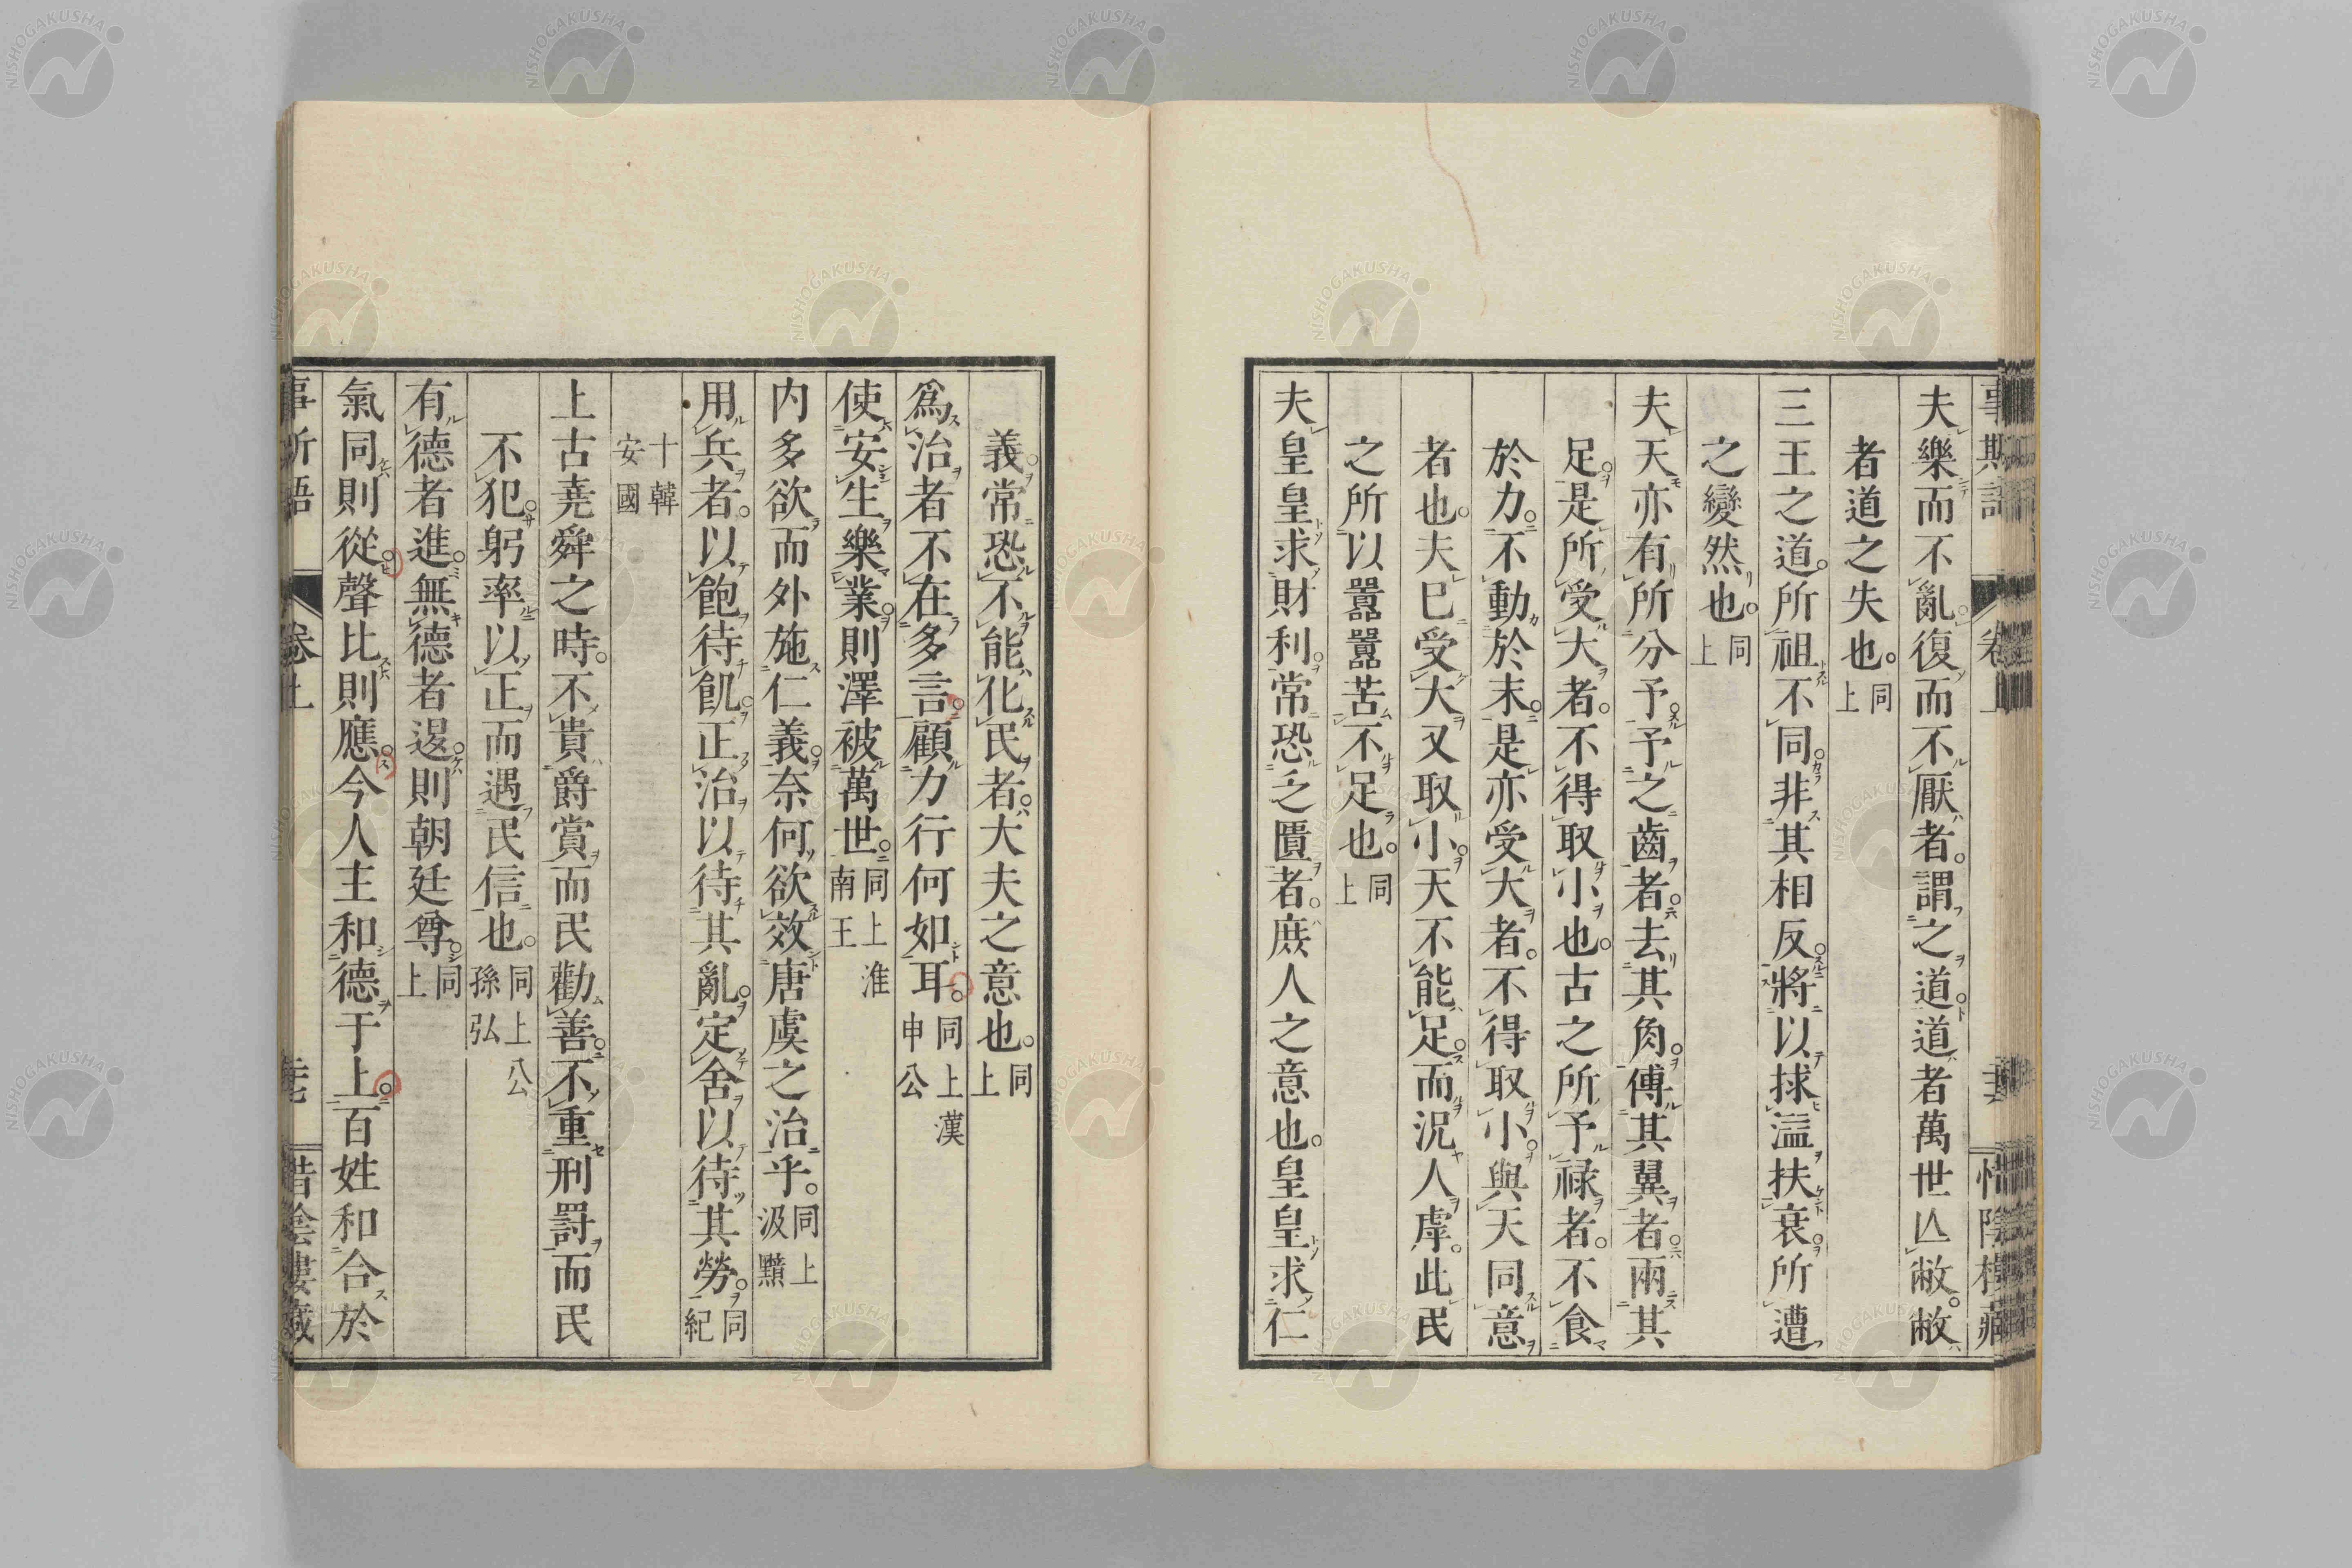 夫樂而不亂復而不厭者謂之道道者萬世亾敝敝
者道之失也同上
三王之道所祖不同非其相反將以捄溢扶衰所遭
之變然也同上
夫天亦有所分予予之齒者去其角傅其翼者兩其
足是所受大者不得取小也古之所予祿者不食
於力不動於末是亦受大者不得取小與天同意
者也夫已受大又取小天不能足而況人虖此民
之所以囂囂苦不足也同上
夫皇皇求財利常恐乏匱者庶人之意也皇皇求仁
義常恐不能化民者大夫之意也同上
爲治者不在多言顧力行何如耳同上漢申公
使安生樂業則澤被萬世同上淮南王
内多欲而外施仁義奈何欲效唐虞之治乎同上汲黯
用兵者以飽待飢正治以待其亂定舍以待其勞同紀
十韓安國
上古堯舜之時不貴爵賞而民勸善不重刑罰而民
不犯躬率以正而遇民信也同上公孫弘
有德者進無德者退則朝廷尊同上
氣同則從聲比則應今人主和德于上百姓和合於
卷上
NISHOGAKUSHA